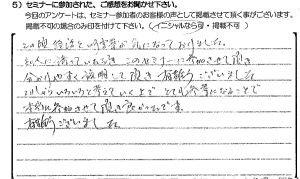 5）セミナーに参加された、ご感想をお聞かせ下さい。
今回のアンケートは、セミナー参加者のお皆様の声として掲載させて頂く事がございます。
掲載不可の場合のみ印を付けて下さい。（イニシャルなら可・掲載不可）
この頃 という言葉が気になっておりました。
知人に 頂き セミナーに参加させて頂き
分かりやすく説明して頂き 有難うございました
これからいろいろと考えていく上で とても参考になることで
本当に参加させて頂き良かったです。
有難うございました